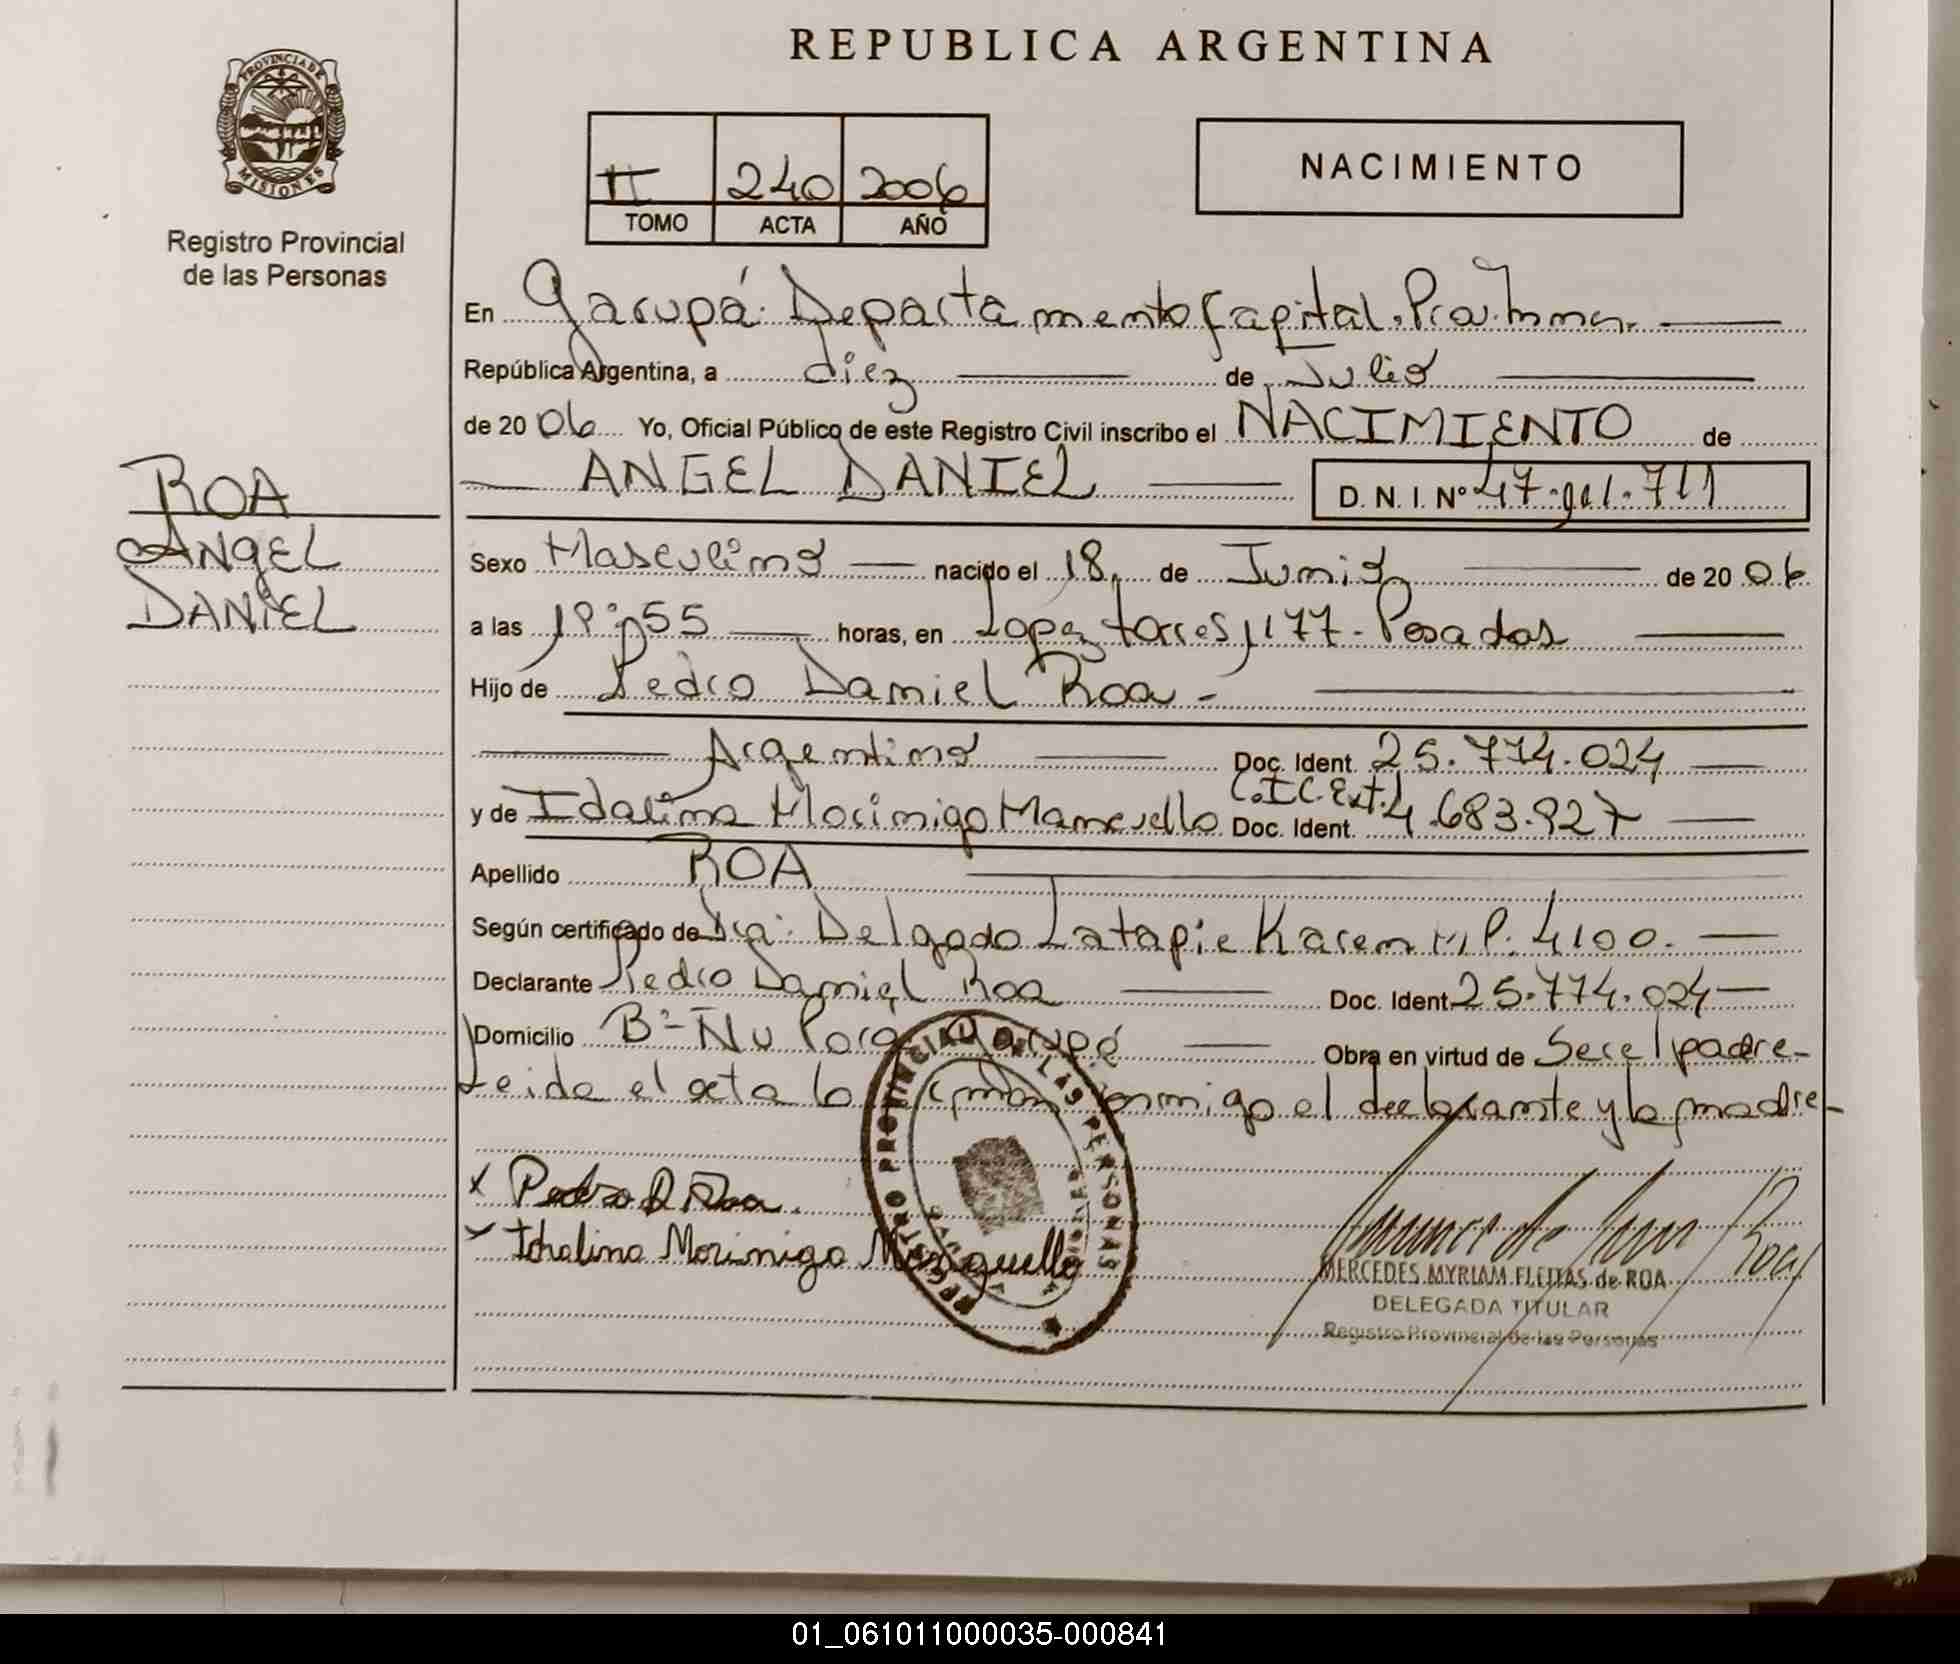 REPUBLICA ARGENTINA
PROVINCIA DE MISIONES
Registro Provincial
de las Personas
II 240 2006
TOMO ACTA AÑO
NACIMIENTO
En Garupá. Departamento Capital,
República Argentina, a diez de Julio
de 2006 Yo, Oficial Público de este Registro Civil inscribo el NACIMIENTO de
ANGEL DANIEL D. N. I. Nº
ROA
ANGEL
DANIEL
Sexo Masculino nacido el 18 de Junio de 2006
a las horas, en Lopez torres 1177 - Posadas
Hijo de Pedro Daniel Roa -
Argentino Doc. Ident. 25.774.024
C.I.C. Ext.
y de Idalina Morinigo Doc. Ident.
Apellido ROA
Según certificado de Dra: Delgado Latapie Karen M.P. 4100.
Declarante Pedro Daniel Roa Doc. Ident 25.774.024
Domicilio Bº- Ñu Pora Garupá Obra en virtud de Ser el padre-
Leida el acta la conmigo el declarante y la madre-
x Pedro D Roa.
x Morinigo
REGISTRO PROVINCIAL DE LAS PERSONAS
MERCEDES MYRIAM FLEITAS de ROA
DELEGADA TITULAR
Registro Provincial de las Personas
01_061011000035-000841